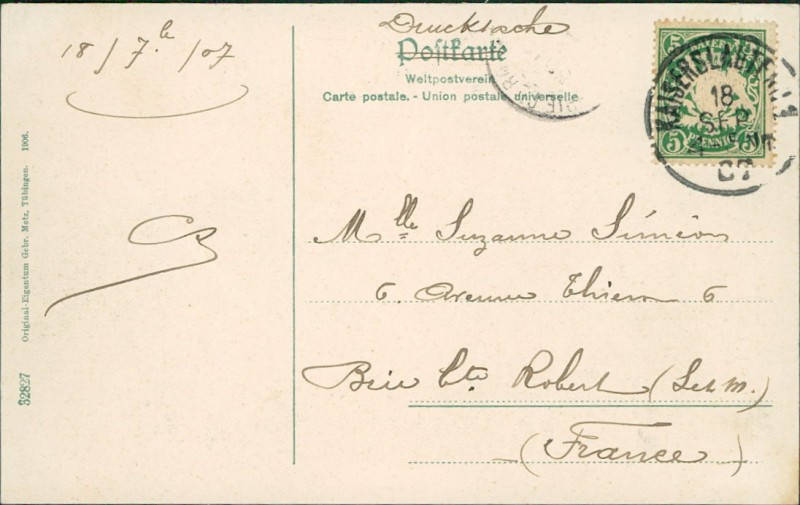 Drucksache
Postkarte
Weltpostverein
Carte postale. - Union postale universelle
18 / 7.b / 07
5 5
5 PFENNIG 5
KAISERSLAUTERN 1
18
SEP
07
Mlle Suzanne Siméon
6. Avenue Thiers 6
Brie Cte Robert (S.et.M.)
(France)
Original-Eigentum Gebr. Metz, Tübingen. 1906.
32827